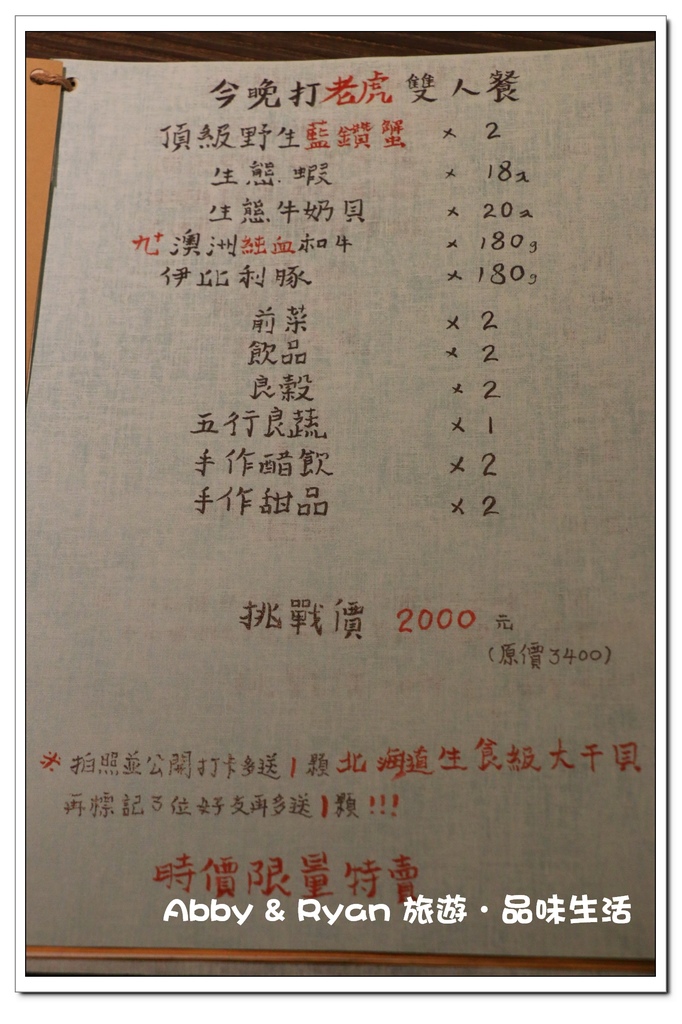 今晚打老虎 雙人餐
頂級野生藍鑽蟹 × 2
生態蝦 × 18
生態牛奶貝 × 20
九⁺澳洲純血和牛 × 180g
伊比利豚 × 180g
前菜 × 2
飲品 × 2
良穀 × 2
五行良蔬 × 1
手作醋飲 × 2
手作甜品 × 2
挑戰價 2000 元
(原價3400)
※ 拍照並公開打卡多送1顆 北海道生食級大干貝
再標記3位好友再多送1顆!!!
時價限量特賣
Abby & Ryan 旅遊・品味生活